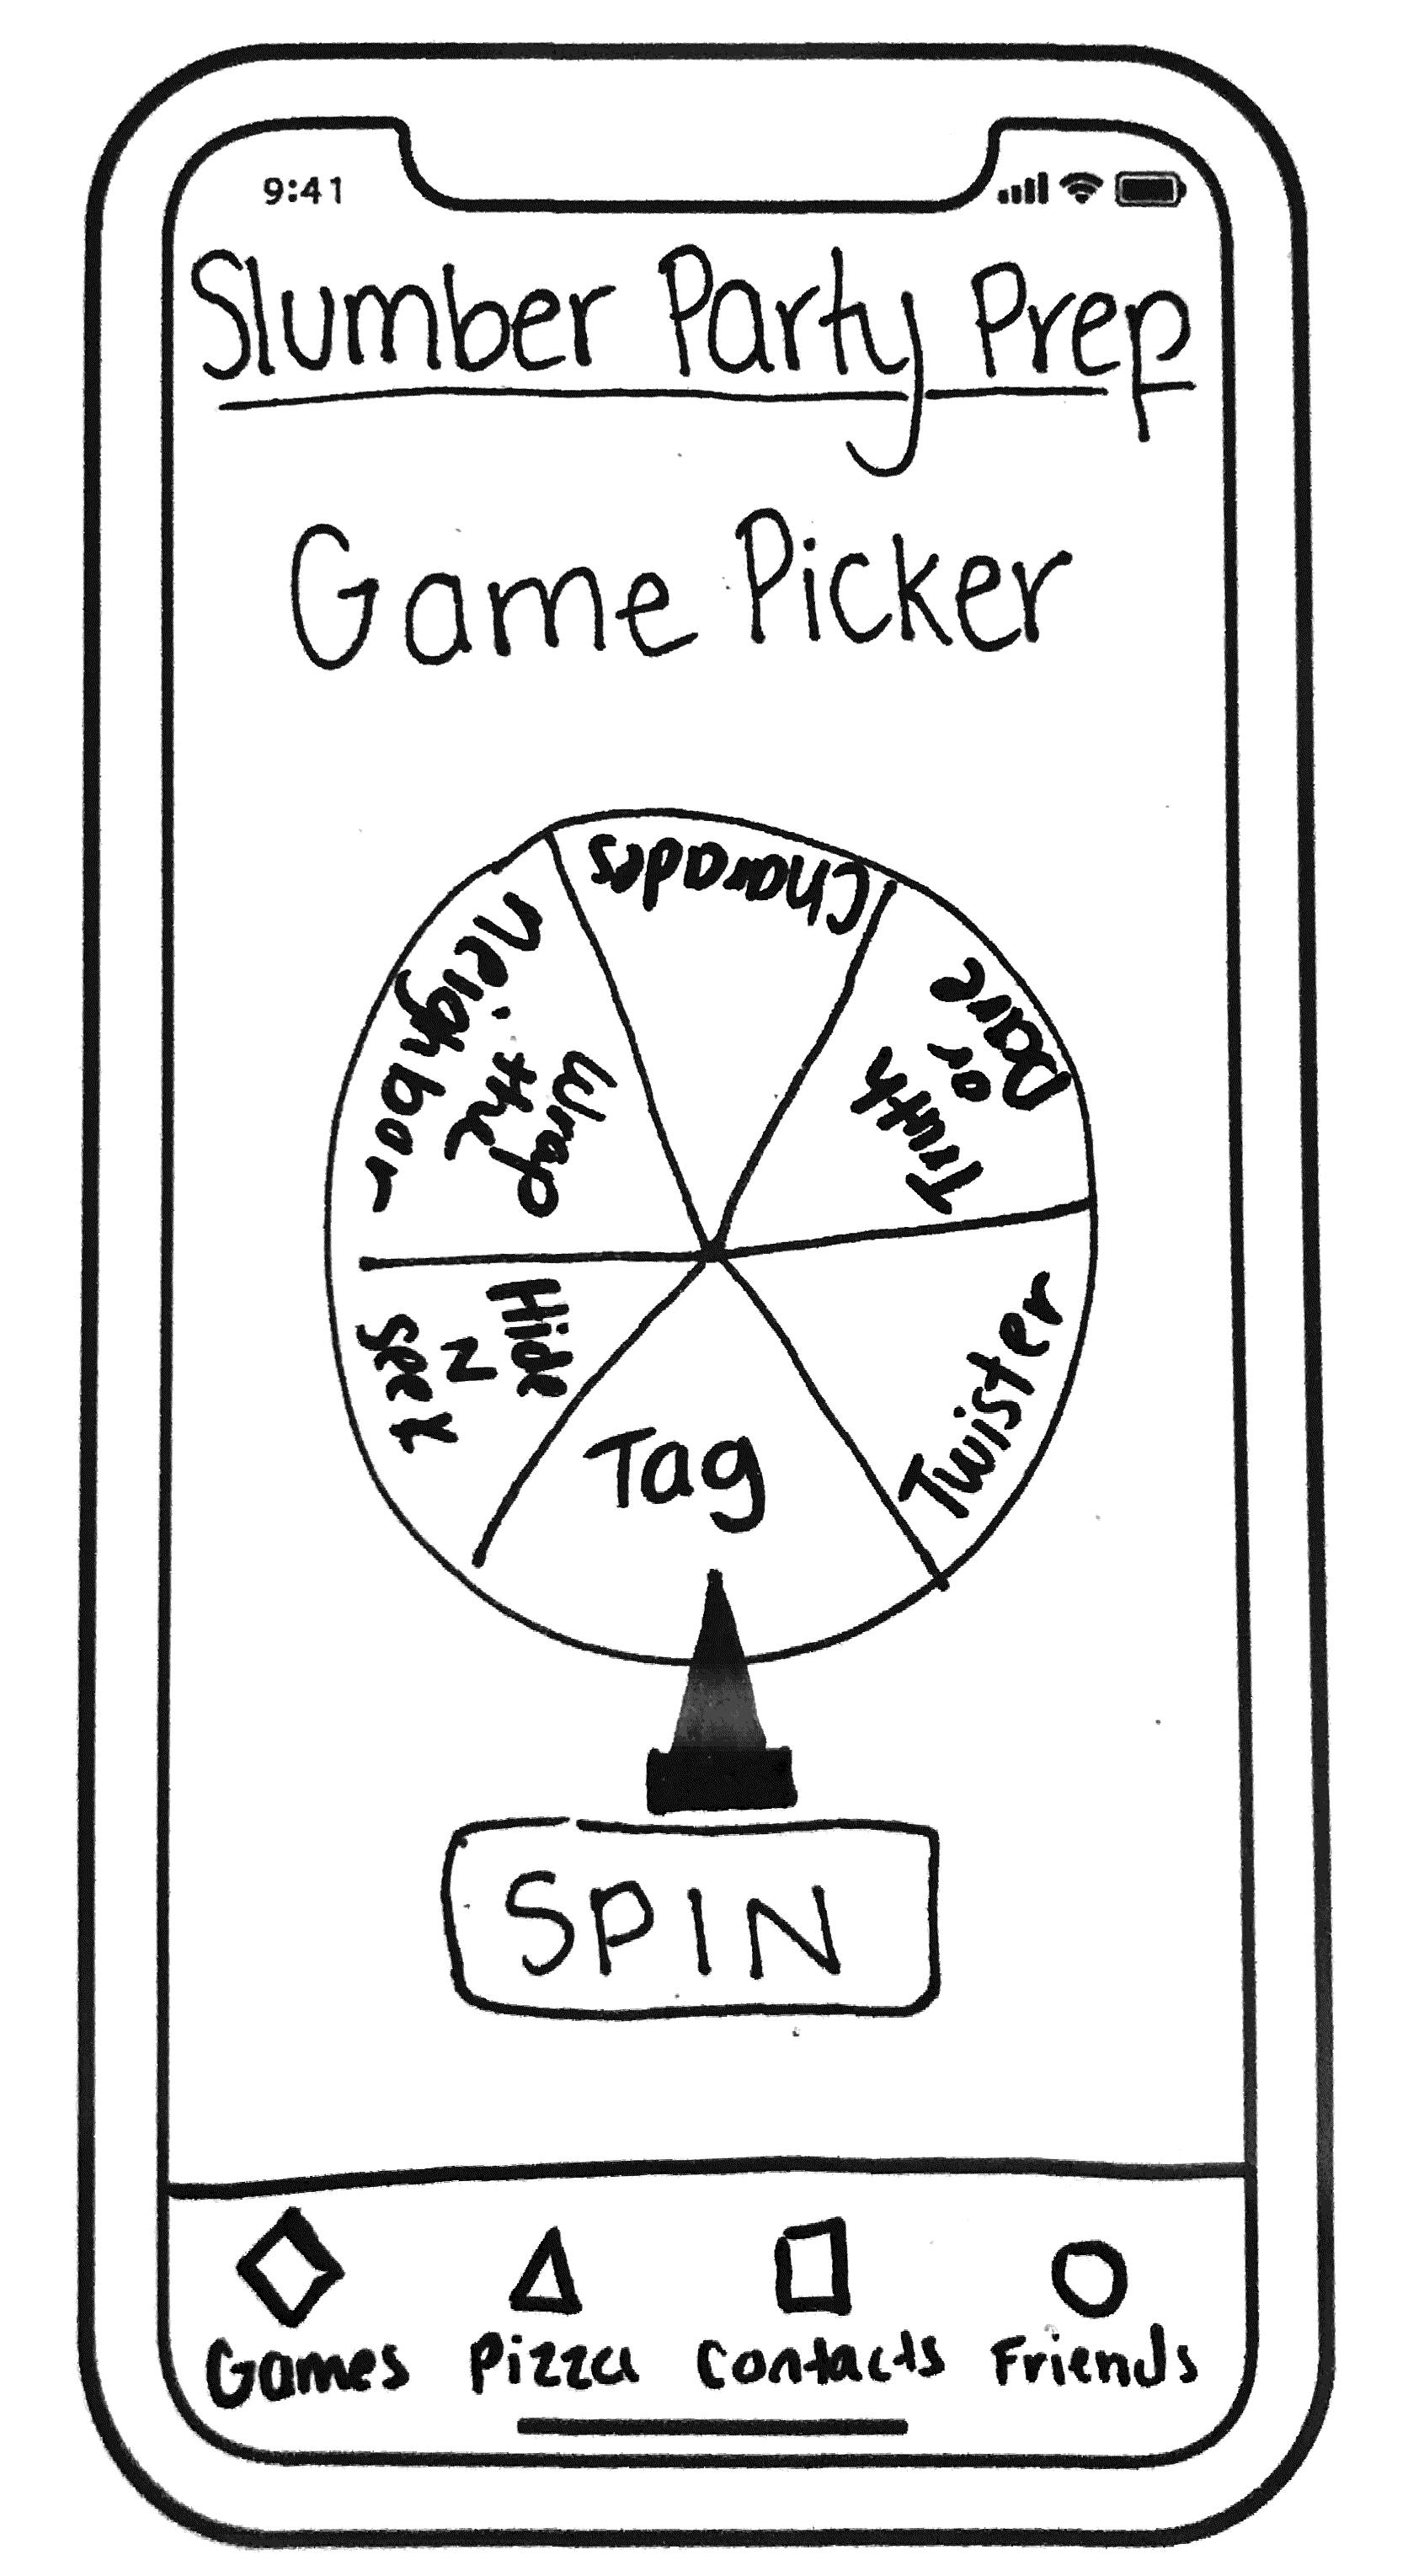 9:41
Slumber Party Prep
Game Picker
Charades
Truth
or
Dare
Twister
Tag
Hide
N
Seek
Wrap
the
neighbor
SPIN
Games
Pizza
Contacts
Friends